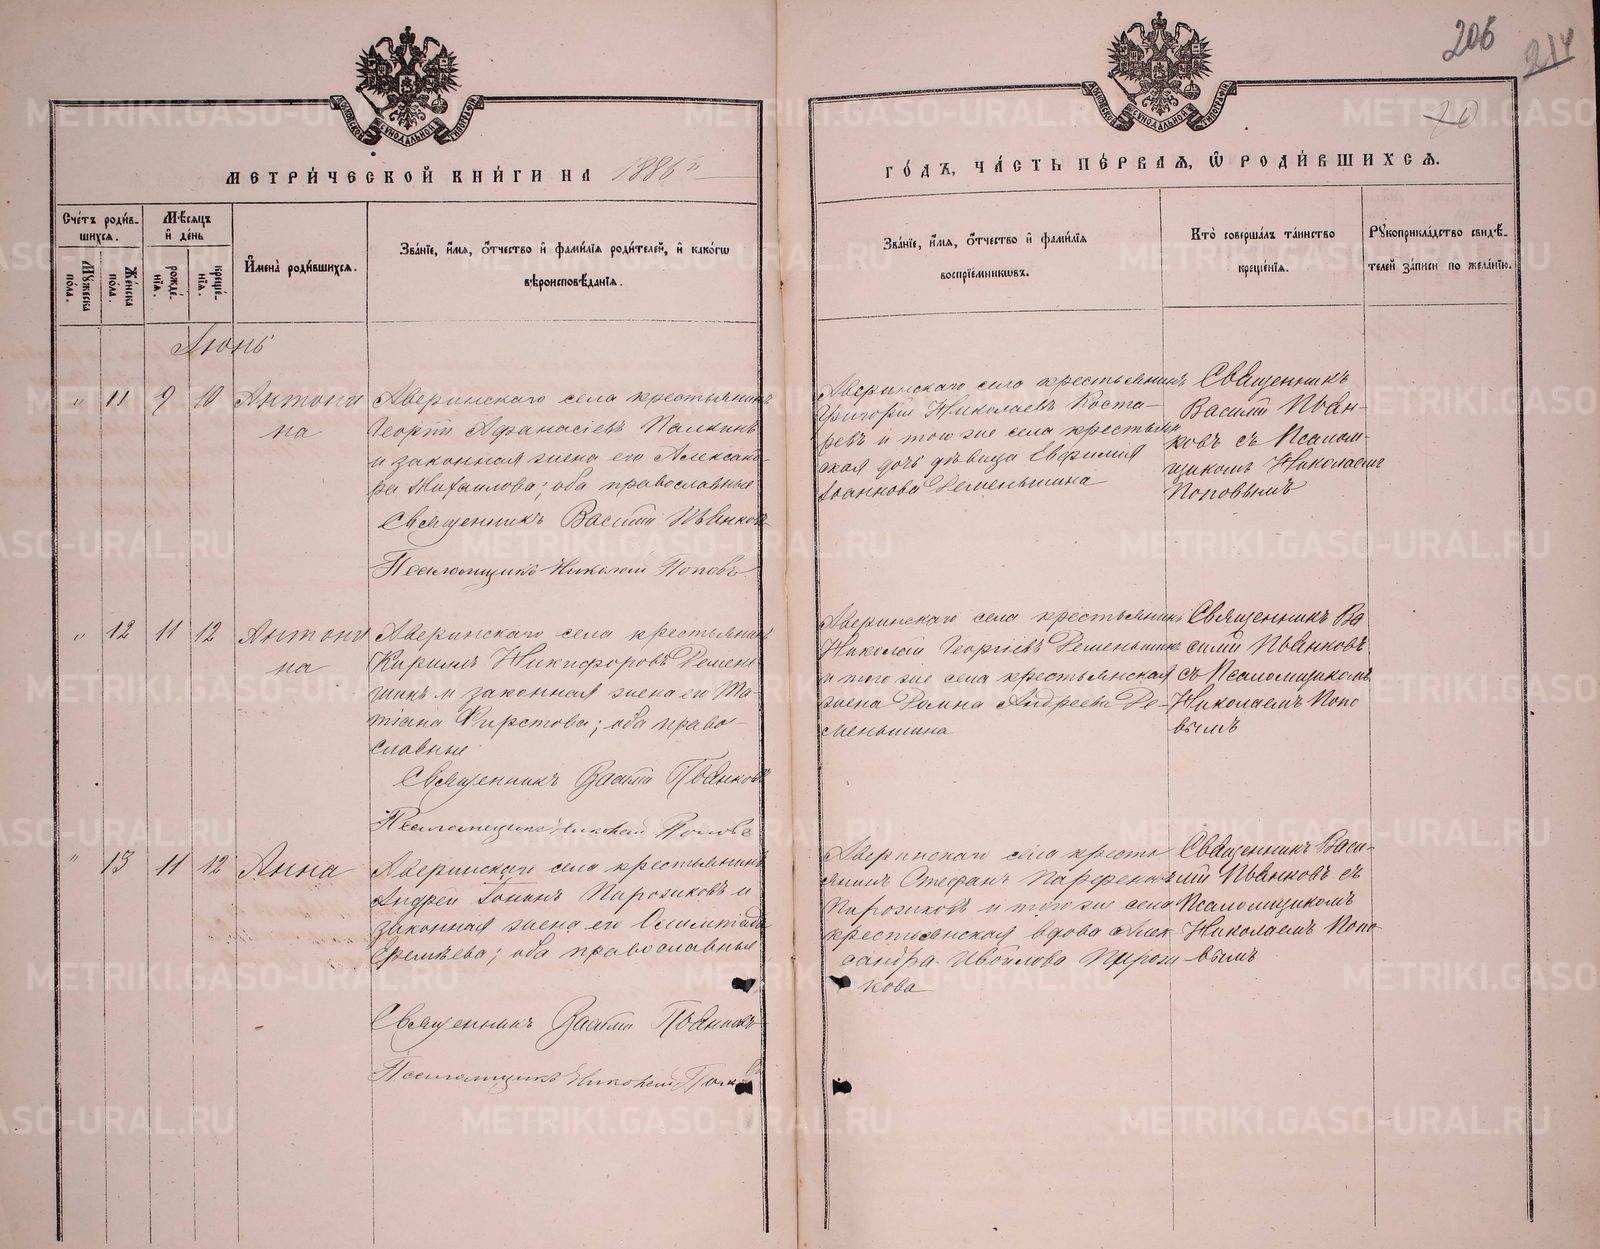 206
214
70
МЕТРИ́ЧЕСКОЙ КНИ́ГИ НА 1886й
ГО́ДЪ, ЧА́СТЬ ПЕ́РВАЯ, Ѡ РОДИ́ВШИХСЯ.
Сче́тъ роди́в-
шихся.
Му́жеска по́ла.
Же́нска по́ла.
Мѣ́сяцъ и́ де́нь
рожде́нїя.
креще́нїя.
И҆мена̀ роди́вшихся.
Зва́нїе, и҆́мя, ѻ҆́тчество и҆ фами́лїя роди́телей, и҆ како́гѡ
вѣроисповѣ́данїя.
Зва́нїе, и҆́мя, ѻ҆́тчество и҆ фами́лїя
воспрїе́мникѡвъ.
Кто̀ соверша́лъ та́инство
креще́нїя.
Рꙋкоприкла́дство свидѣ́-
телей за́писи по жела́нїю.
Іюнь
" 11 9 10
Антони
на
Аверинскаго села крестьянинъ
Георгій Афанасіевъ Палкинъ
и законная жена его Александ-
ра Михаилова; оба православные
Священникъ Василій Иванковъ
Псаломщикъ Николай Поповъ
Аверинскаго села крестьянинъ
Григорій Николаевъ Коста-
ревъ и того же села крестьян
ская дочь дѣвица Евфимия
Іоаннова Деменьшина
Священникъ
Василій Иван-
ковъ съ Псалом-
щикомъ Николаемъ
Поповымъ
" 12 11 12
Антони
на
Аверинскаго села крестьянинъ
Кириллъ Никифоровъ Демень-
шинъ и законная жена его Та-
тіана Фирстова; оба право-
славные
Священникъ Василій Иванковъ
Псаломщикъ Николай Поповъ
Аверинскаго села крестьянинъ
Николай Георгіевъ Деменьшинъ
и того же села крестьянская
жена Андреева Де-
меньшина
Священникъ Ва
силій Иванковъ
съ Псаломщикомъ
Николаемъ Попо
вымъ
" 13 11 12
Анна
Аверинскаго села крестьянинъ
Андрей Іонинъ Пирожковъ и
законная жена его Олимпіада
Еремѣева; оба православные
Священникъ Василій Иванковъ
Псаломщикъ Николай Поповъ
Аверинскаго села кресть
янинъ Стефанъ Парфеновъ
Пирожковъ и того же села
крестьянская вдова Алек
сандра Пирож
кова
Священникъ Васи-
лій Иванковъ съ
Псаломщикомъ
Николаемъ Попо
вымъ
METRIKI.GASO-URAL.RU